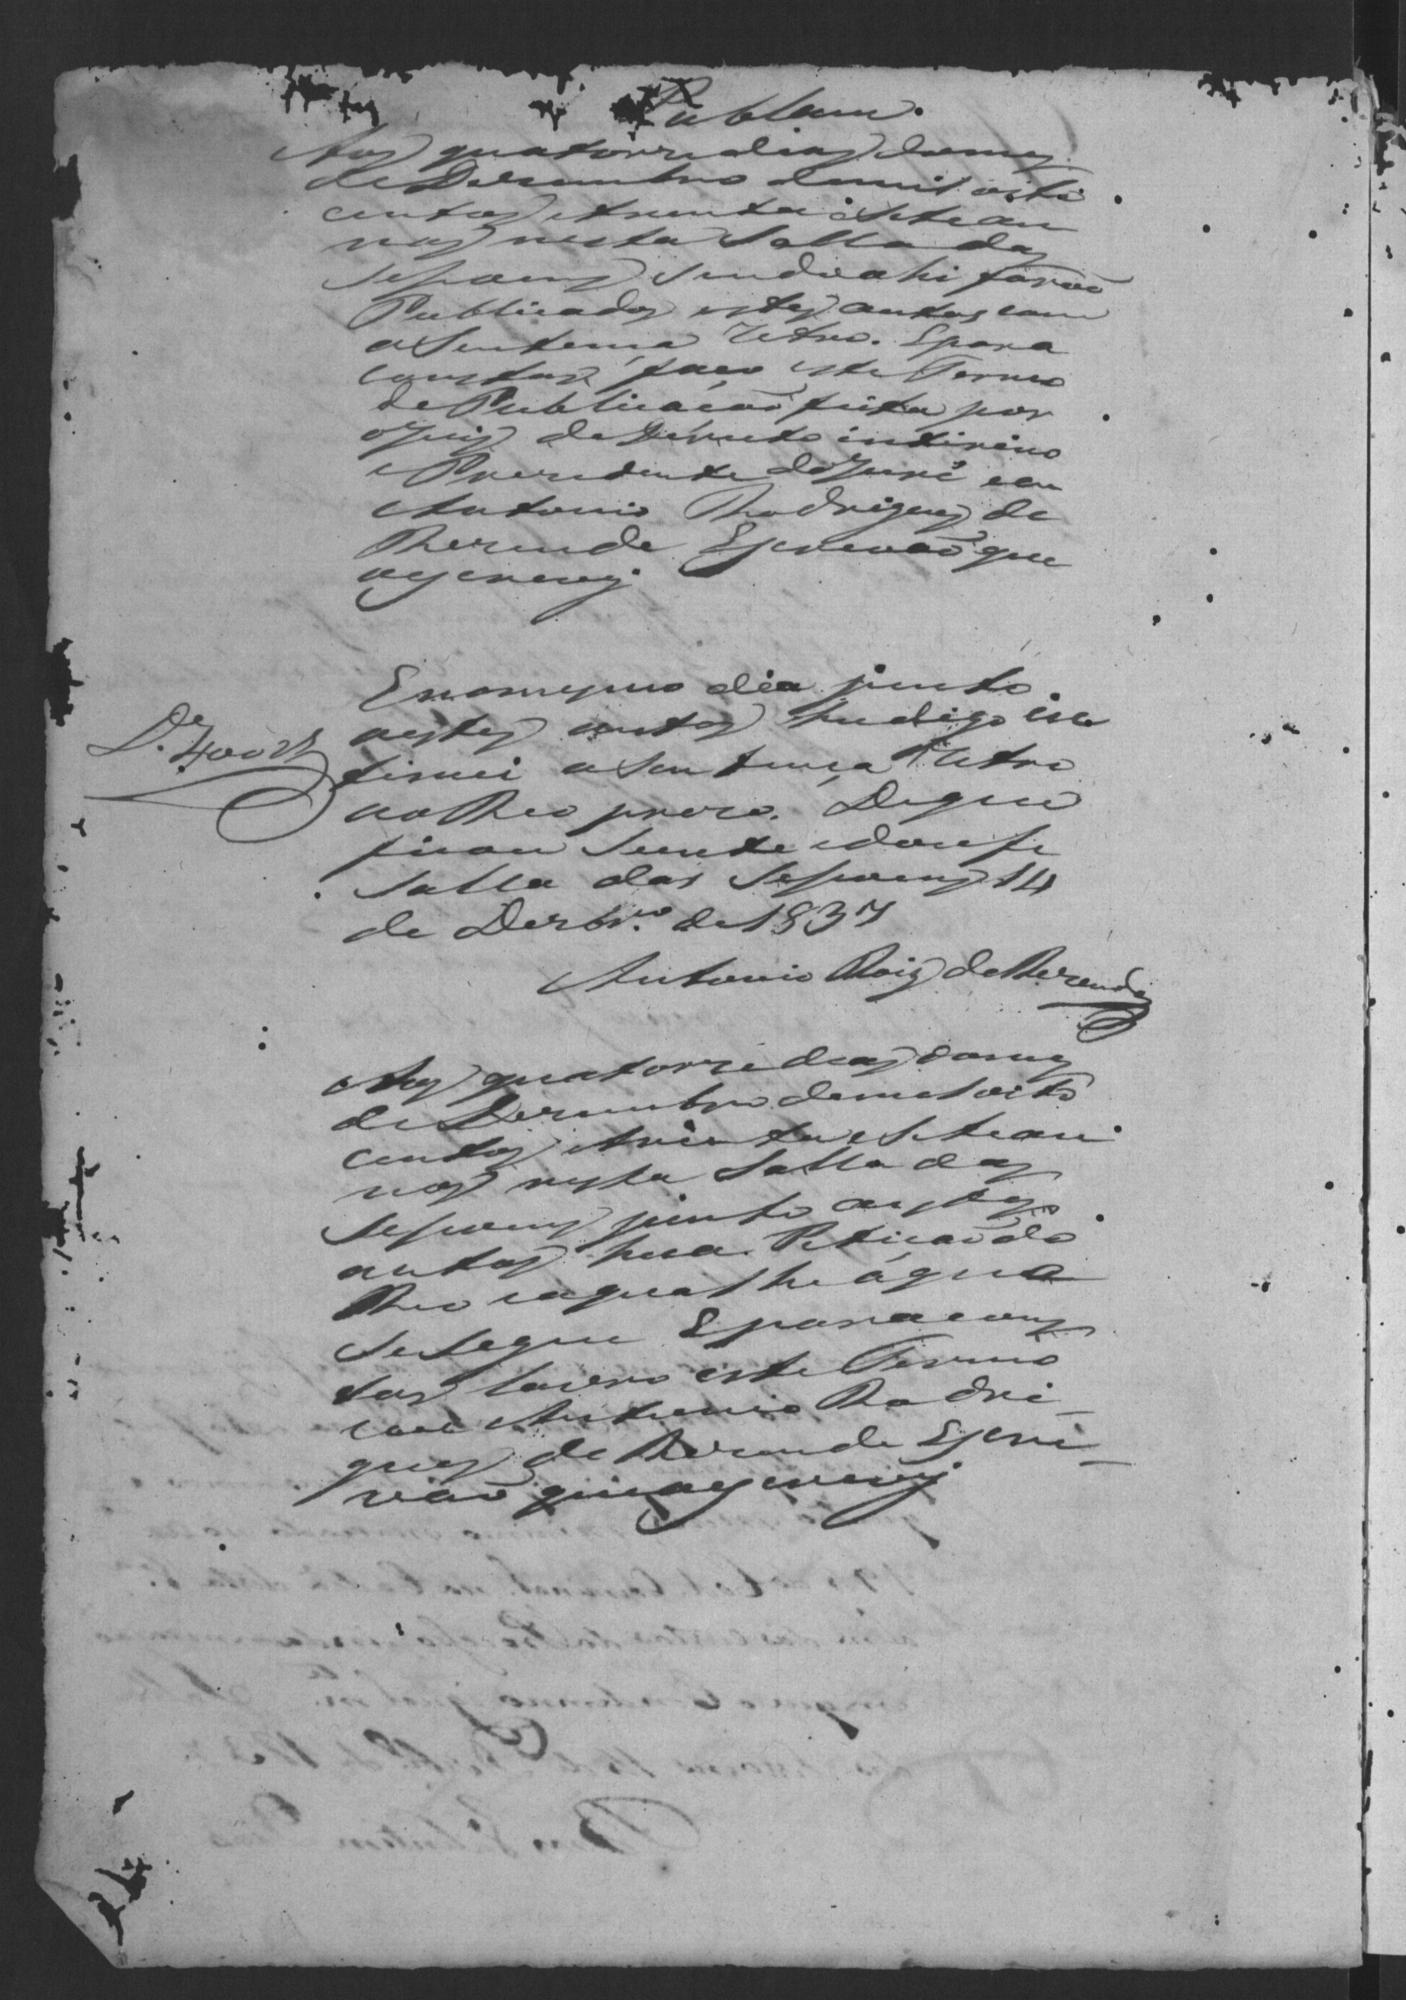 Publicam.
Aos quatorze dias domes
de Dezembro demil oito
centos etrenta eSetean
nos nesta Salla das
Sessoens Sendo ahi farão
Publicados estes autos com
aSentensa retro. Epara
constar faco este Termo
de Publicacão feita por
oJuiz de Direito intirino
e Prezidente doJuri eeu
Antonio Rodrigues de
Rezende Escrevão que
aescrevy.
Enomesmo dia junto
aestes autos
timei aSentença retro
aoReo prezo. Deque
ficou Siente edoufe
Salla das Sessoens 14
de Dezbr.o de 1837
Antonio Roiz de Rezende
D.e 400 rs
Aos quatorze dias domes
de Dezembro demil oito
centos etrinta eSetean
nos nesta Salla das
Sessoens junto aestes
autos hua Peticão do
Reo aqual he aque
Sesegue Epara cons
tar lavro este Termo
eeu Antonio Rodri_
gues de Rezende Escri_
vão queaescrevy